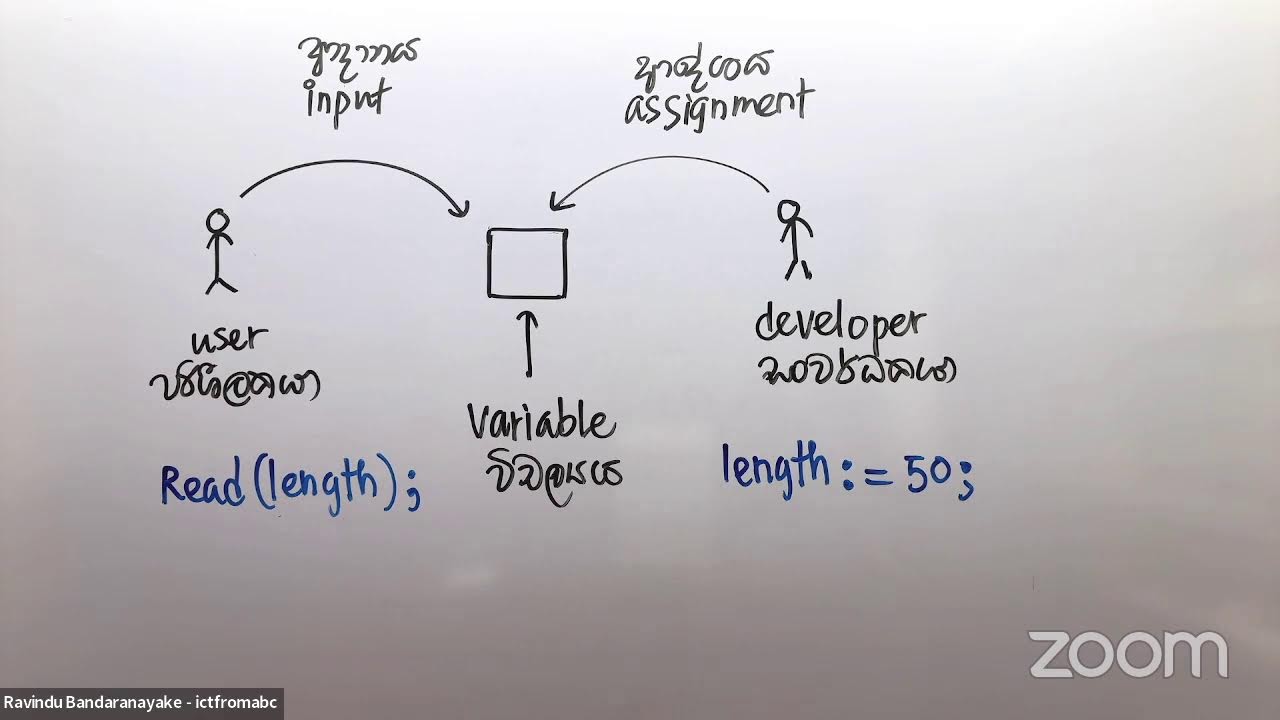 ආදානය
input
ආදේශය
assignment
user
පරිශීලකයා
developer
සංවර්ධකයා
Variable
විචල්‍යය
Read (length);
length := 50;
zoom
Ravindu Bandaranayake - ictfromabc